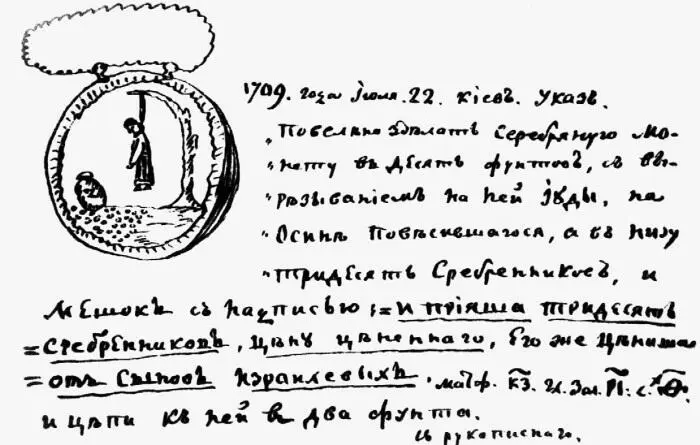 1709. года Iюля. 22. кiевъ. Указъ.
„Повелено здѣлать серебряную мо-
„нету въ десять фунтовъ, съ вы-
„рѣзыванiемъ на ней Iуды, на
„Осинѣ повѣсившагося, а въ низу
„тридесять сребренниковъ, и
мешокъ съ надписью: = и прiяша тридесять
= сребренниковъ, цѣну цѣненнаго, Его же цѣниша
= отъ сыновъ израилевыхъ.
и цѣпи къ ней въ два фунта.
съ рукописнаго.